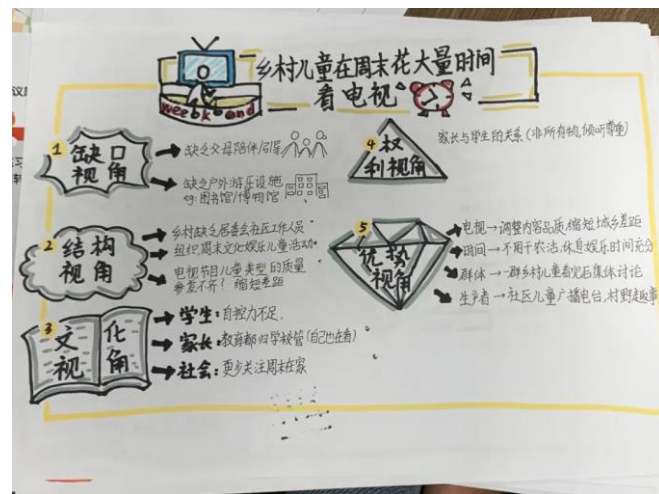 乡村儿童在周末花大量时间
看电视
weekend
1 缺口
视角
缺乏父母陪伴/引导
缺乏户外游乐设施
eg:图书馆/博物馆
2 结构
视角
乡村缺乏居委会社区工作人员
组织周末文化娱乐儿童活动
电视节目儿童类型的质量
参差不齐? 缩短差距
3 文化
视角
学生:自控力不足,
家长:教育都归学校管(自己也在看)
社会:更少关注周末在家
4 权
利视角
家长与学生的关系(非所有物,倾听尊重)
5 优势
视角
电视→调整内容品质,缩短城乡差距
时间→不用干农活,休息娱乐时间充分
群体→一群乡村儿童看完后集体讨论
生产者→社区儿童广播电台,村野趣事